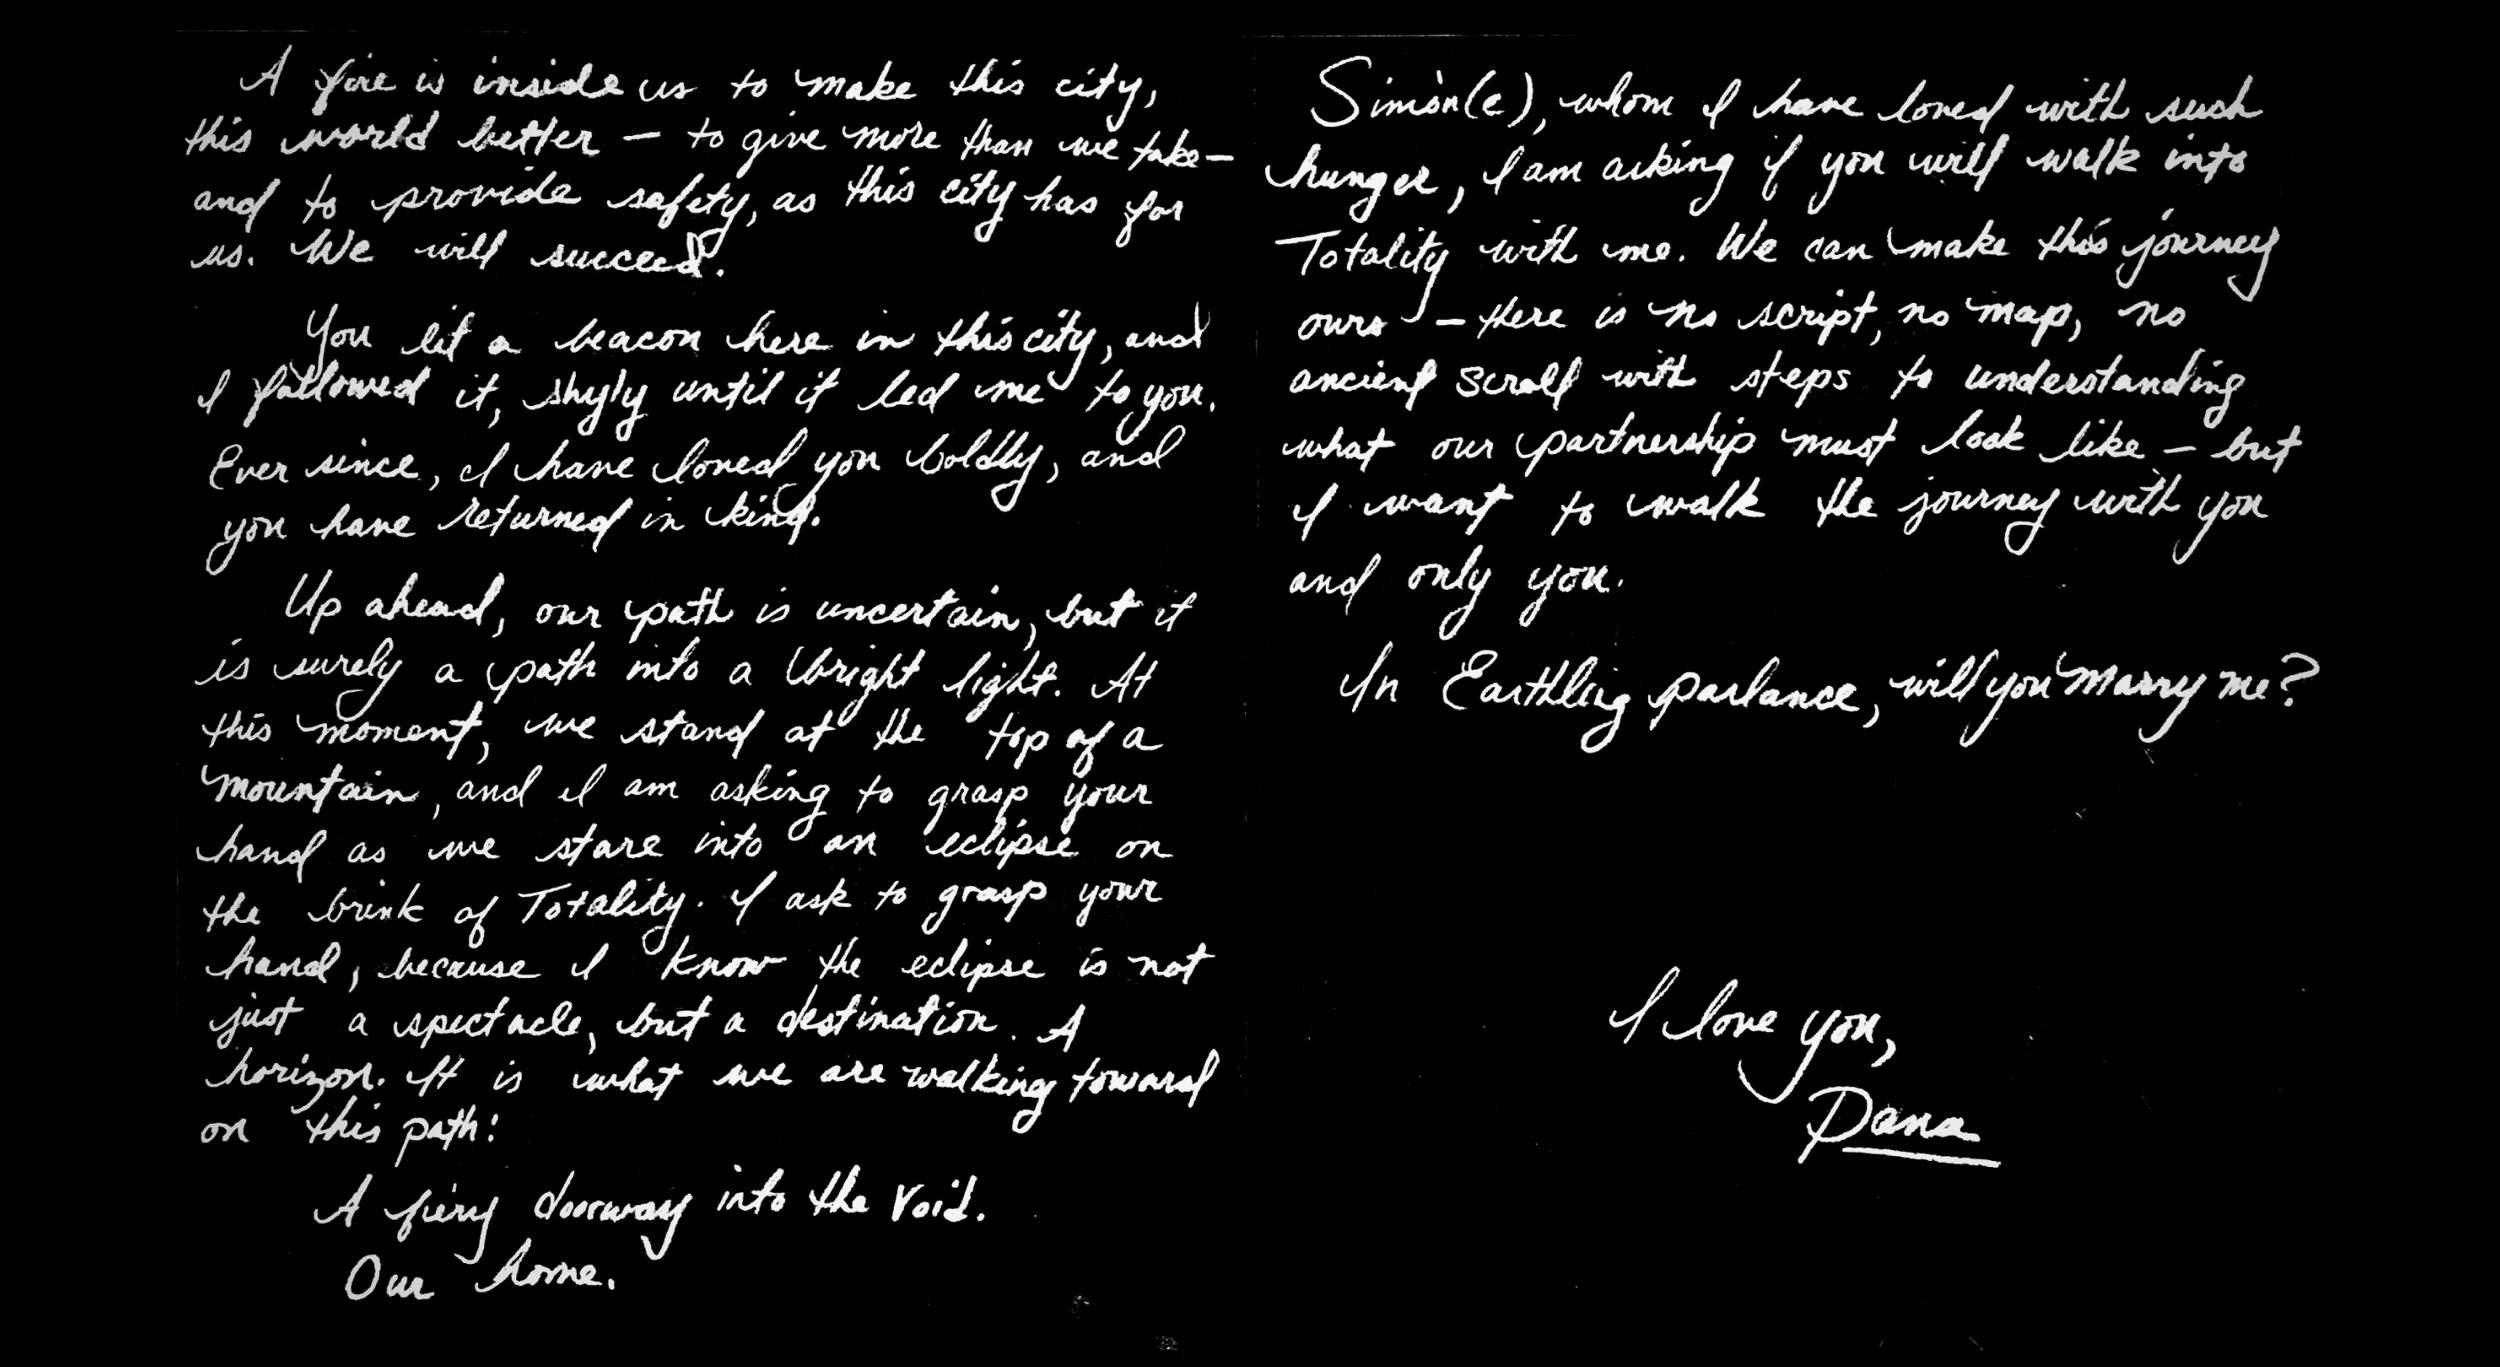 A fire is inside us to make this city,
this world better — to give more than we take —
and to provide safety, as this city has for
us. We will succeed.
You lit a beacon here in this city, and
I followed it, shyly until it led me to you.
Ever since, I have loved you boldly, and
you have returned in kind.
Up ahead, our path is uncertain, but it
is surely a path into a bright light. At
this moment, we stand at the top of a
mountain, and I am asking to grasp your
hand as we stare into an eclipse on
the brink of Totality. I ask to grasp your
hand, because I know the eclipse is not
just a spectacle, but a destination. A
horizon. It is what we are walking toward
on this path:
A fiery doorway into the Void.
Our home.
Simón(e), whom I have loved with such
hunger, I am asking if you will walk into
Totality with me. We can make this journey
ours — there is no script, no map, no
ancient scroll with steps to understanding
what our partnership must look like — but
I want to walk the journey with you
and only you.
In Earthling parlance, will you marry me?
I love you,
Dana